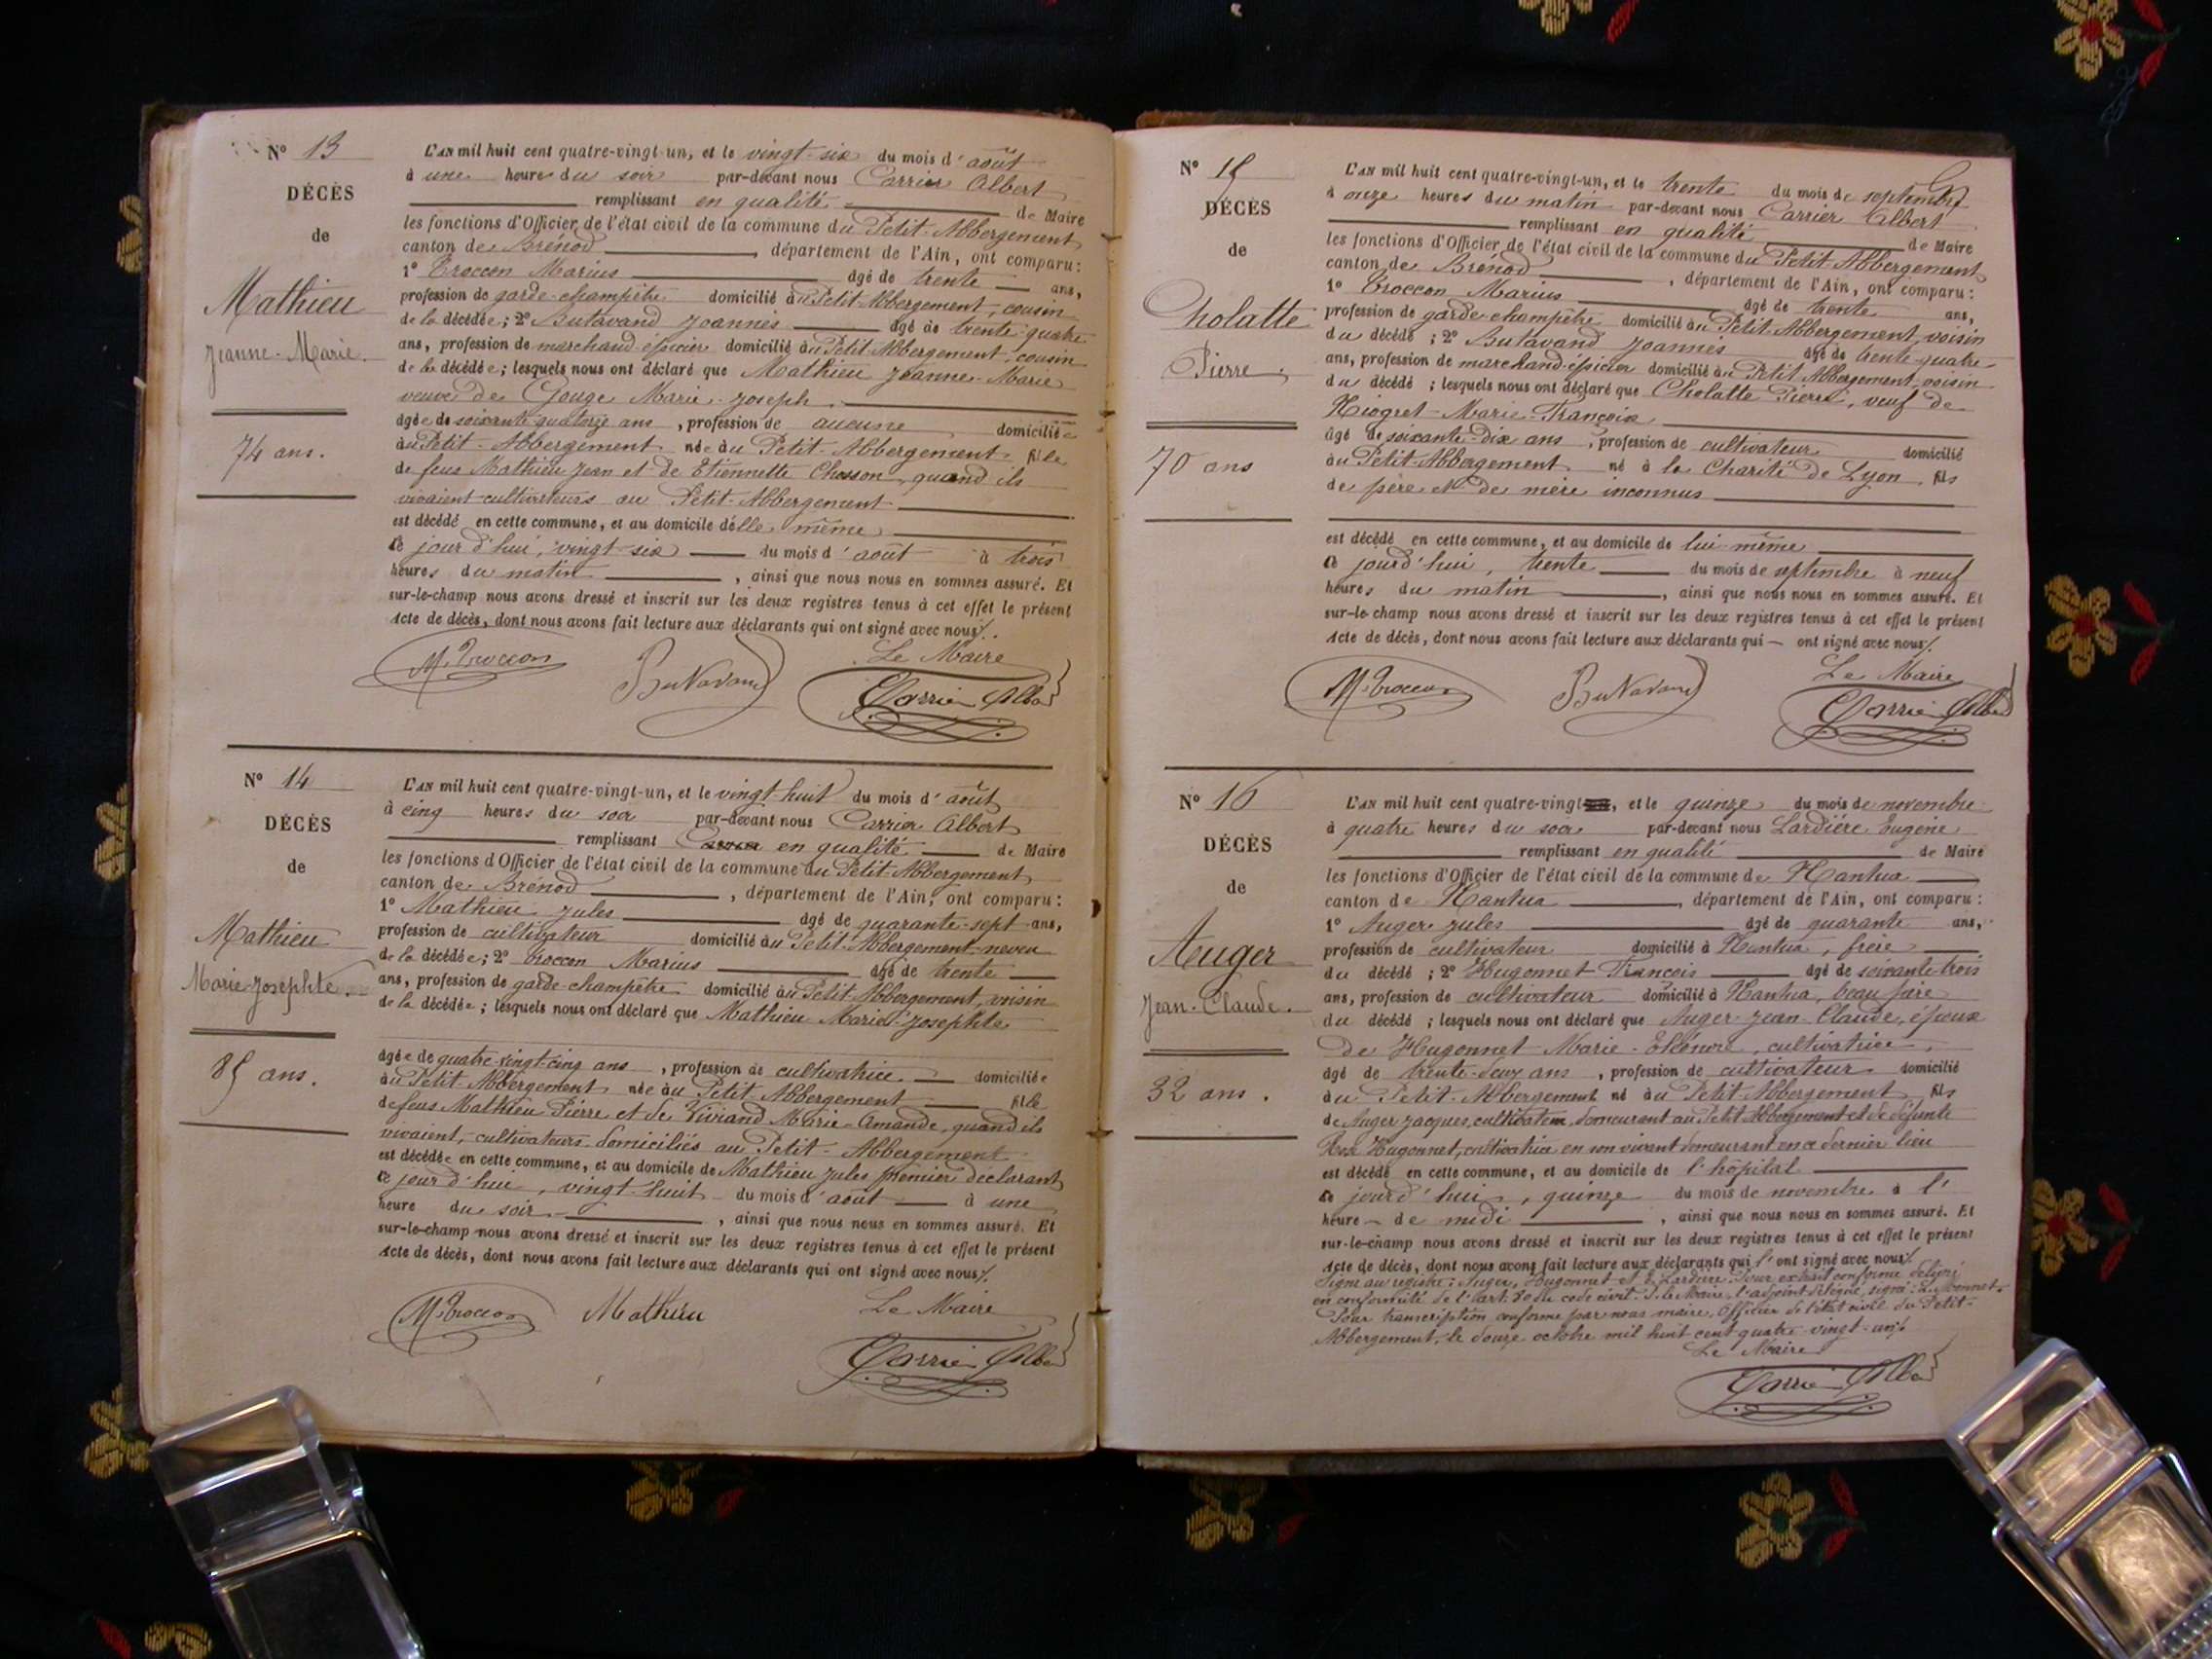 N° 13
DÉCÈS
de
Mathieu
Jeanne-Marie.
74 ans.
L'AN mil huit cent quatre-vingt-un, et le vingt-six du mois d'août
à une heure du soir par-devant nous Carrier Albert
remplissant en qualité de Maire
les fonctions d'Officier de l'état civil de la commune du Petit-Abbergement
canton de Brénod, département de l'Ain, ont comparu:
1° Troccon Marius âgé de trente ans,
profession de garde-champêtre domicilié au Petit-Abbergement, cousin
de la décédée; 2° Butavand Joannès âgé de trente-quatre
ans, profession de marchand-épicier domicilié au Petit-Abbergement, cousin
de la décédée; lesquels nous ont déclaré que Mathieu Jeanne-Marie
veuve de Gouge Marie-Joseph
âgée de soixante-quatorze ans, profession de aucune domiciliée
au Petit-Abbergement née au Petit-Abbergement fille
de feus Mathieu Jean et de Etiennette Chosson, quand ils
vivaient cultivateurs au Petit-Abbergement
est décédé en cette commune, et au domicile d'elle même
ce jour d'hui, vingt-six du mois d'août à trois
heures du matin, ainsi que nous nous en sommes assuré. Et
sur-le-champ nous avons dressé et inscrit sur les deux registres tenus à cet effet le présent
Acte de décès, dont nous avons fait lecture aux déclarants qui ont signé avec nous/.
M. Troccon Butavand Le Maire
Carrier Albert
N° 14
DÉCÈS
de
Mathieu
Marie-Josephte.
85 ans.
L'AN mil huit cent quatre-vingt-un, et le vingt-huit du mois d'août
à cinq heures du soir par-devant nous Carrier Albert
remplissant en qualité de Maire
les fonctions d'Officier de l'état civil de la commune du Petit-Abbergement
canton de Brénod, département de l'Ain, ont comparu:
1° Mathieu Jules âgé de quarante-sept ans,
profession de cultivateur domicilié au Petit-Abbergement, neveu
de la décédée; 2° Troccon Marius âgé de trente
ans, profession de garde-champêtre domicilié au Petit-Abbergement, voisin
de la décédée; lesquels nous ont déclaré que Mathieu Marie-Josephte
âgée de quatre-vingt-cinq ans, profession de cultivatrice domiciliée
au Petit-Abbergement née au Petit-Abbergement fille
de feus Mathieu Pierre et de Vivrand Marie-Amande, quand ils
vivaient, cultivateurs domiciliés au Petit-Abbergement
est décédée en cette commune, et au domicile de Mathieu Jules premier déclarant
ce jour d'hui, vingt-huit du mois d'août à une
heure du soir, ainsi que nous nous en sommes assuré. Et
sur-le-champ nous avons dressé et inscrit sur les deux registres tenus à cet effet le présent
Acte de décès, dont nous avons fait lecture aux déclarants qui ont signé avec nous/.
M. Troccon Mathieu Le Maire
Carrier Albert
N° 15
DÉCÈS
de
Cholatte
Pierre.
70 ans
L'AN mil huit cent quatre-vingt-un, et le trente du mois de septembre
à onze heures du matin par-devant nous Carrier Albert
remplissant en qualité de Maire
les fonctions d'Officier de l'état civil de la commune du Petit-Abbergement
canton de Brénod, département de l'Ain, ont comparu:
1° Troccon Marius âgé de trente ans,
profession de garde-champêtre domicilié au Petit-Abbergement, voisin
du décédé; 2° Butavand Joannès âgé de trente-quatre
ans, profession de marchand-épicier domicilié au Petit Abbergement, voisin
du décédé; lesquels nous ont déclaré que Cholatte Pierre, veuf de
Niogret Marie-Françoise
âgé de soixante-dix ans, profession de cultivateur domicilié
au Petit-Abbergement né à la Charité de Lyon, fils
de père et de mère inconnus
est décédé en cette commune, et au domicile de lui-même
ce jourd'hui, trente du mois de septembre à neuf
heures du matin, ainsi que nous nous en sommes assuré. Et
sur-le-champ nous avons dressé et inscrit sur les deux registres tenus à cet effet le présent
Acte de décès, dont nous avons fait lecture aux déclarants qui ont signé avec nous/.
M. Troccon Butavand Le Maire
Carrier Albert
N° 16
DÉCÈS
de
Auger
Jean-Claude.
32 ans.
L'AN mil huit cent quatre-vingt, et le quinze du mois de novembre
à quatre heures du soir par-devant nous Lardière Eugène
remplissant en qualité de Maire
les fonctions d'Officier de l'état civil de la commune de Nantua
canton de Nantua, département de l'Ain, ont comparu:
1° Auger Jules âgé de quarante ans,
profession de cultivateur domicilié à Nantua, frère
du décédé; 2° Hugonnet François âgé de soixante-trois
ans, profession de cultivateur domicilié à Nantua, beau père
du décédé; lesquels nous ont déclaré que Auger Jean-Claude, époux
de Hugonnet Marie-Eléonore, cultivatrice,
âgé de trente-deux ans, profession de cultivateur domicilié
au Petit-Abbergement né au Petit Abbergement fils
de Auger Jacques, cultivateur, demeurant au Petit Abbergement et de défunte
Rose Hugonnet, cultivatrice en son vivant demeurant en ce dernier lieu
est décédé en cette commune, et au domicile de l'hôpital
ce jourd'hui, quinze du mois de novembre à l'
heure de midi, ainsi que nous nous en sommes assuré. Et
sur-le-champ nous avons dressé et inscrit sur les deux registres tenus à cet effet le présent
Acte de décès, dont nous avons fait lecture aux déclarants qui l'ont signé avec nous/.
Signé au registre: Auger, Hugonnet et E. Lardière. Pour extrait conforme délivré
en conformité de l'art. 80 du code civil. P. le Maire, l'adjoint délégué, signé:
Pour transcription conforme par nous maire, Officier de l'état civil du Petit-
Abbergement, le douze octobre mil huit cent quatre-vingt-un/.
Le Maire
Carrier Albert